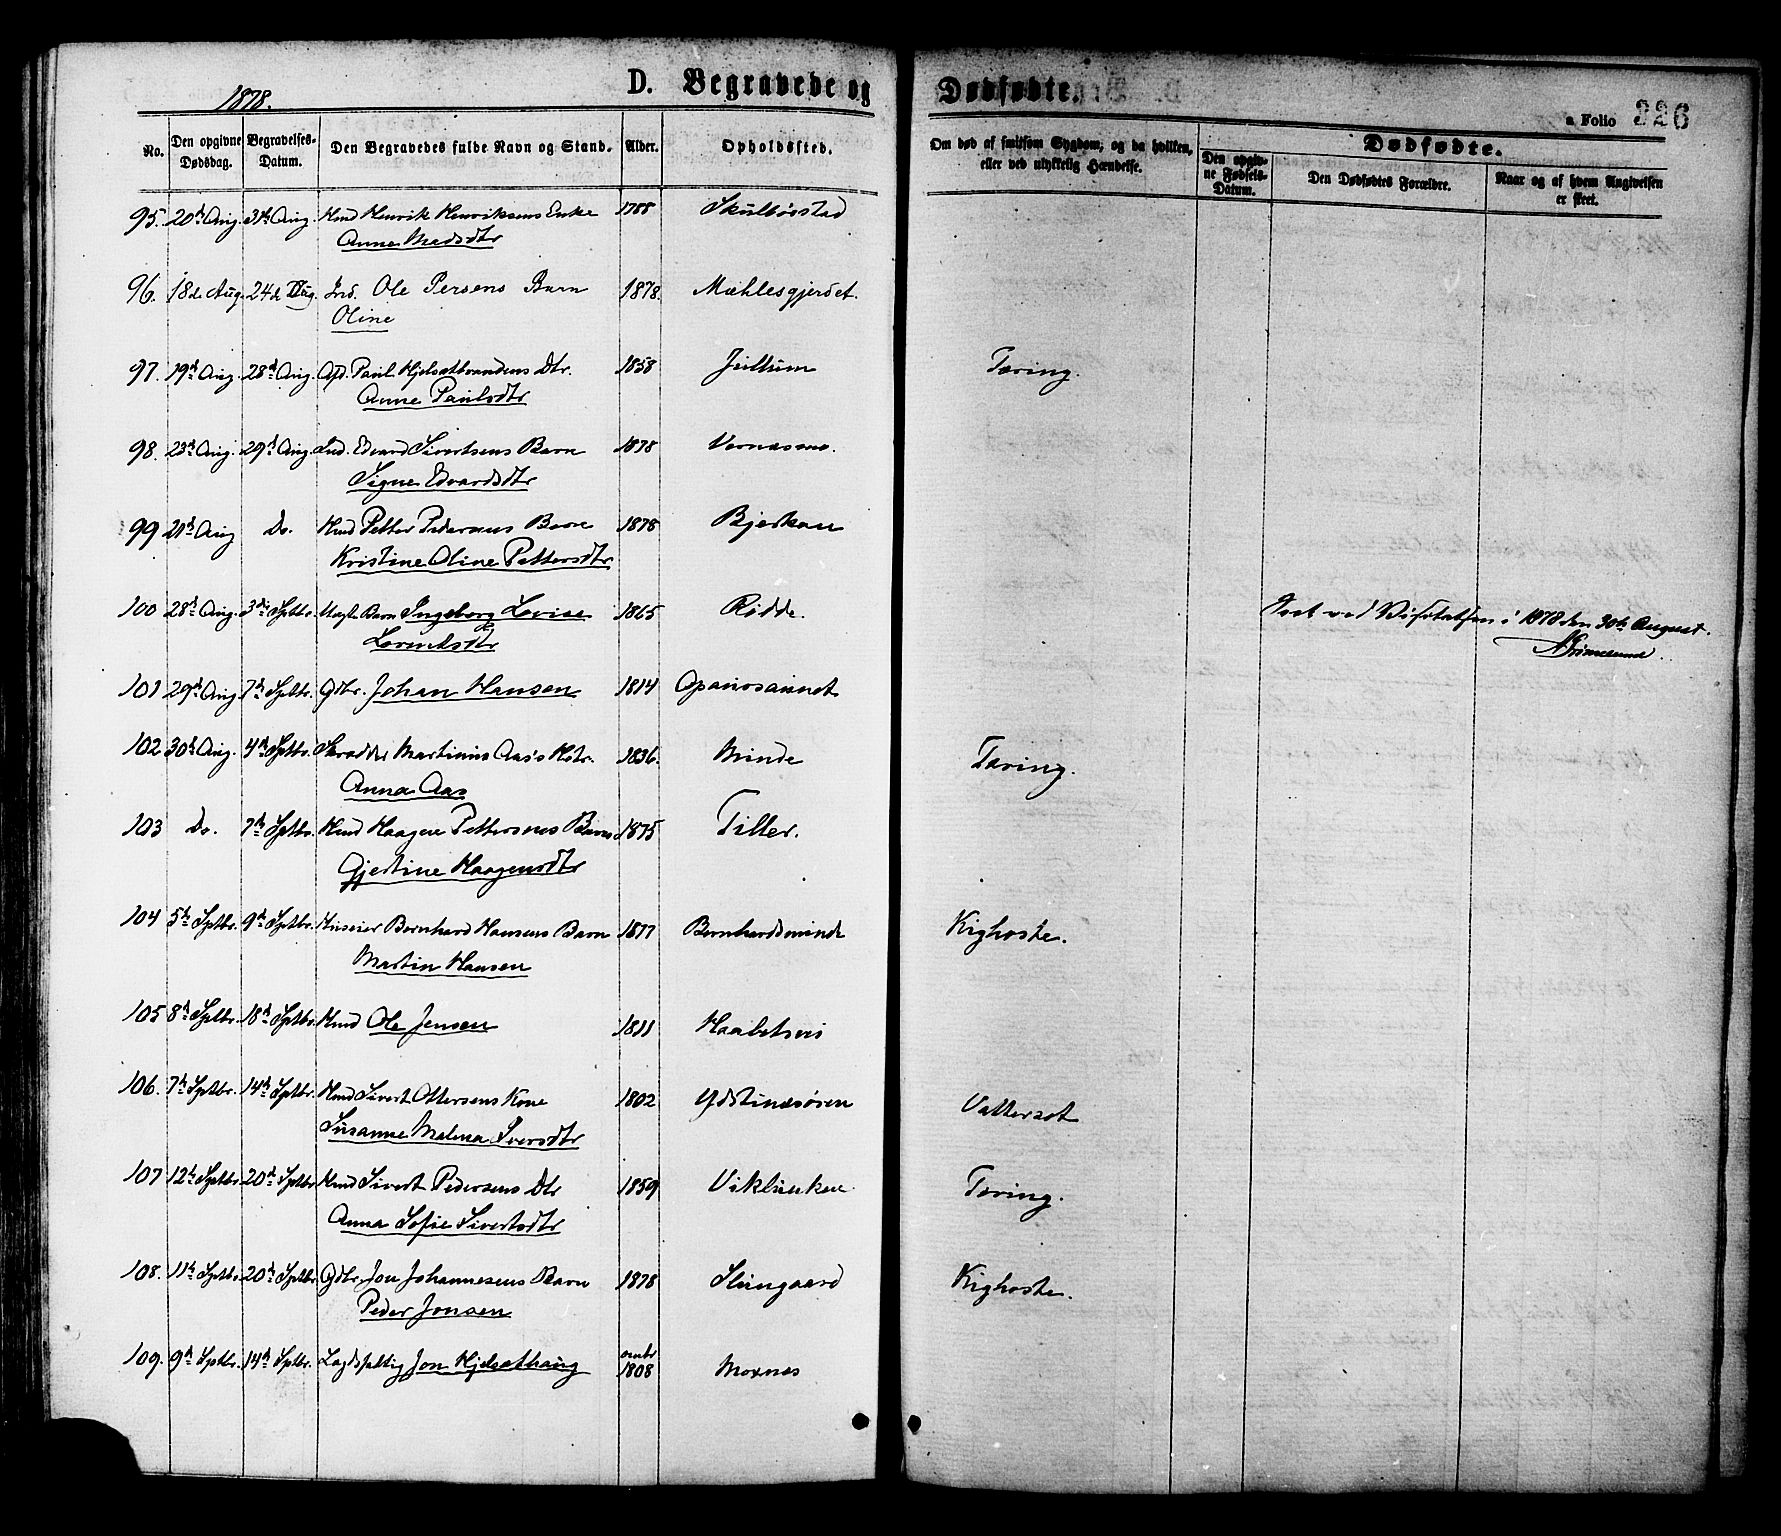 1878.
D. Begravede og Dødfødte.
a. Folio 326
No. Den opgivne Dødsdag. Begravelses-Datum. Den Begravedes fulde Navn og Stand. Alder. Opholdssted. Om død af smitsom Sygdom, og da hvilken, eller ved ulykkelig Hændelse. Dødfødte.
Den opgivne Fødsels-Datum. Den Dødfødtes Forældre. Naar og af hvem Angivelsen er skeet.
95. 20de Aug. 31te Aug. Hmd Henrik Henriksens Enke 1788 Skulbørstad
Anne Madsdtr
96. 18de Aug. 24de Aug. Ind. Ole Persens Barn 1878. Mæhlesgjerdet.
Oline
97. 19de Aug. 28de Aug. Afd. Paul Hjelsetbrandens Dtr. 1858 Jullum Tæring.
Anne Paulsdtr
98. 23de Aug. 29de Aug. Ind. Edvard Sivertsens Barn 1878 Vernæsmo.
Signe Edvardsdtr
99 21de Aug Do. Hmd Petter Pedersens Barn 1878 Bjerkan
Kristine Oline Pettersdtr
100 28de Aug. 3die Sptbr. Uægte Barn Ingeborg Lovise 1865 Rødde.
Lorentsdtr
Seet ved Visitatsen i 1878 den 30te August.
101 29de Aug 7de Sptbr. Gdbr. Johan Hansen 1814
102 30te Aug. 4de Sptbr. Skrædder Martinus Aas's Hstr. 1836. Minde Tæring.
Anna Aas
103 Do. 7de Sptbr. Hmd Haagen Pettersens Barn 1875 Tiller.
Gjertine Haagensdtr
104 5te Sptbr. 9de Sptbr. Huseier Bernhard Hansens Barn 1877 Bernhardsminde Kighoste.
Martin Hansen
105 8de Sptbr. 18de Sptbr. Hmd Ole Jensen 1811 Haabetsvei
106. 7de Sptbr. 14de Sptbr. Hmd Sivert Ottersens Kone 1802 Ydstinesøren Vattersot
Susanne Malena Iversdtr
107 12te Sptbr 20de Sptbr Hmd Sivert Pedersens Dtr 1859 Vikbuken Tæring.
Anna Sofie Sivertsdtr
108. 11te Sptbr. 20de Sptbr Gdbr. Jon Johannesens Barn 1878 Stungaard Kighoste.
Peder Jonsen
109. 9de Sptbr. 14de Sptbr. Lægdsfattig Jon Hjelsethaug omtr 1808 Moxnes